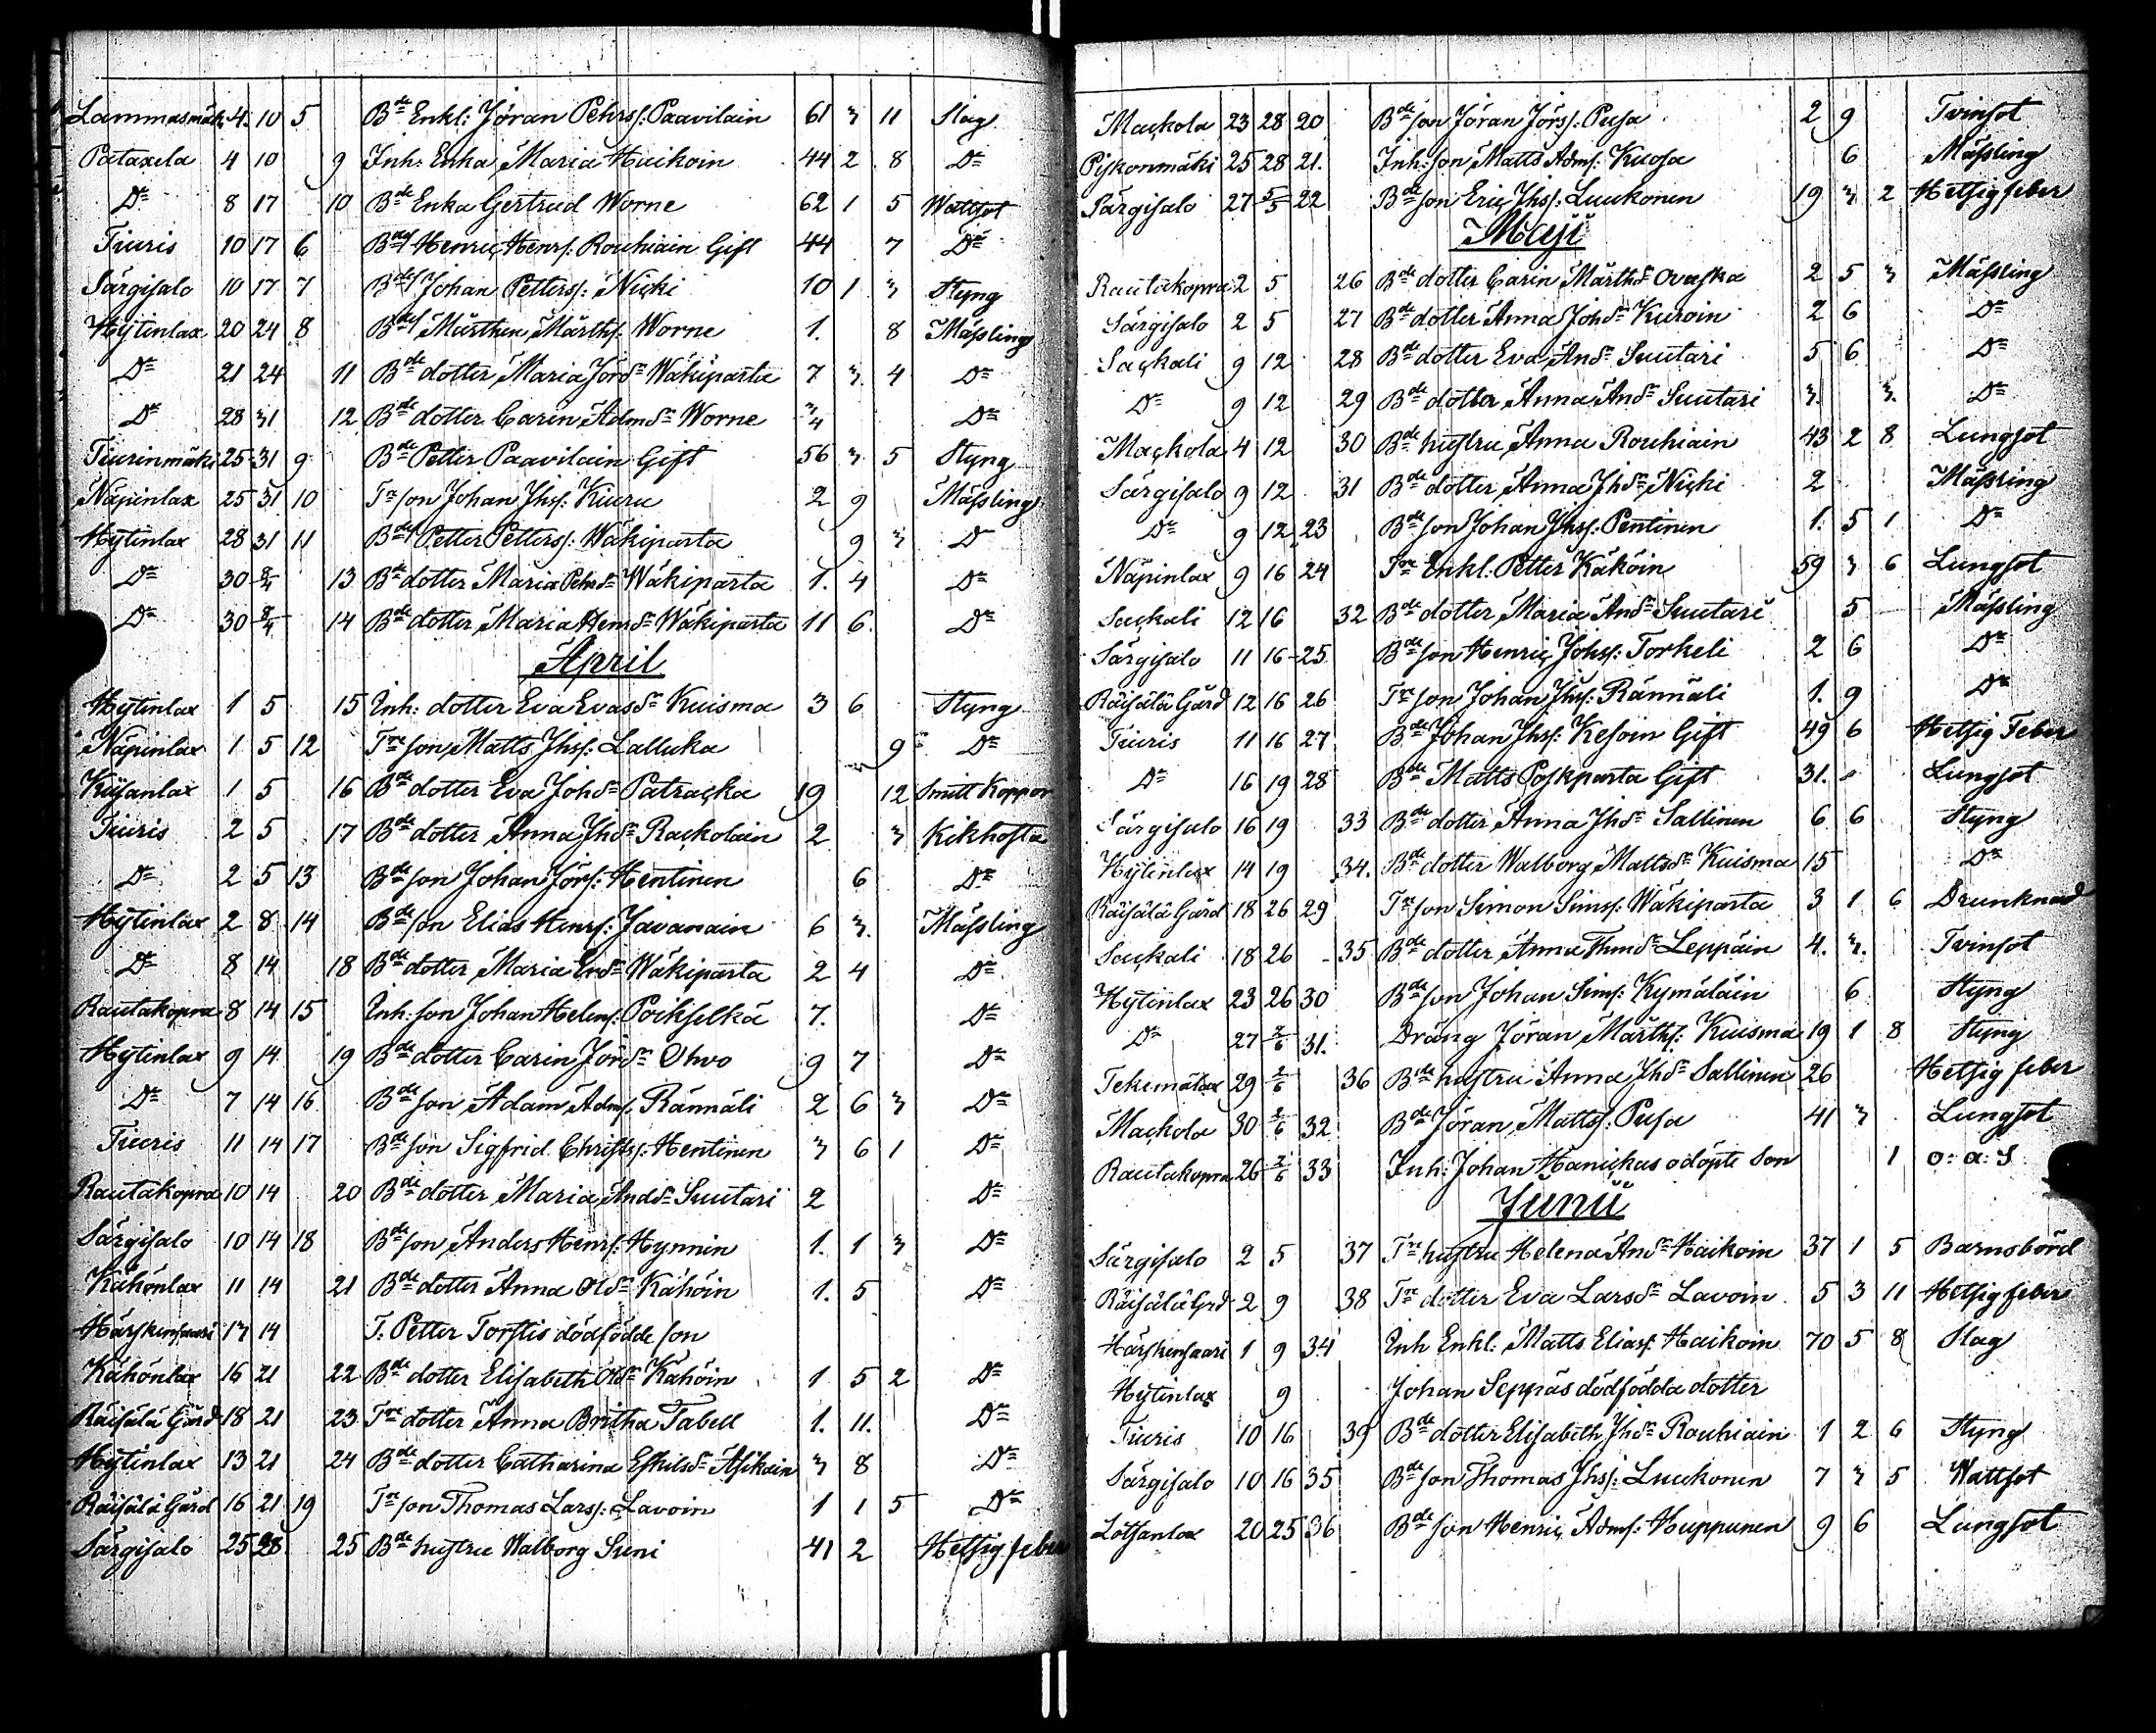 Lammasmäki 4. 10 5 Bde Enkl: Jöran Pehrs: Paavilain 61 3 11 Slag
Pataxela 4 10 9 Inh: Enka Maria Haikoin 44 2 8 Do
Do 8 17 10 Bde Enka Gertrud Worne 62 1 5 Wattsot
Tiuris 10 17 6 Bdes Henric Henrs: Rouhiain Gift 44 7 Do
Särgisalo 10 17 7 Bdes Johan Petters: Nicki 10 1 3 Styng
Hytinlax 20 24 8 Bdes Mårthen Mårths: Worne 1. 8 Mässling
Do 21 24 11 Bde dotter Maria Jördr Wäkiparta 7 3 4 Do
Do 28 31 12 Bde dotter Carin Admdr Worne 3/4 Do
Tiurinmäki 25 31 9 Bde Petter Paavilain Gift 56 3 5 Styng
Näpinlax 25 31 10 Tr son Johan Jhss: Kiuru 2 9 Mässling
Hytinlax 28 31 11 Bdes Petter Petters: Wäkiparta 9 3 Do
Do 30 8/4 13 Bde dotter Maria Pehrsdr Wäkiparta 1. 4 Do
Do 30 8/4 14 Bde dotter Maria Henrsdr Wäkiparta 11 6 Do
April
Hytinlax 1 5 15 Inh: dotter Eva Evasdr Kuisma 3 6 Styng
Näpinlax 1 5 12 Tre son Matts Jhss: Lalluka 9 Do
Kiisanlax 1 5 16 Bde dotter Eva Johdr Patracka 19 12 Smitt Koppor
Tiuris 2 5 17 Bde dotter Anna Jhdr Rackolain 2 3 Kikhosta
Do 2 5 13 Bde son Johan Jörs: Hentinen 6 Do
Hytinlax 2 8 14 Bde son Elias Henrs: Javanain 6 3. Mässling
Do 8 14 18 Bde dotter Maria Erdr Wäkiparta 2 4 Do
Rautakopra 8 14 15 Inh: son Johan Helens: Poikselkä 7. Do
Hytinlax 9 14 19 Bde dotter Carin Jördr Ohvo 9 7 Do
Do 7 14 16 Bde son Adam Adms: Rännäli 2 6 3 Do
Tiuris 11 14 17 Bde son Sigfrid Christers: Hentinen 3 6 1 Do
Rautakopra 10 14 20 Bde dotter Maria Andsdr Suutari 2 Do
Särgisalo 10 14 18 Bde son Anders Henrs: Hynnin 1. 1 3 Do
Kähönlax 11 14 21 Bde dotter Anna Oldr Kähöin 1. 5 Do
Härskinsaari 13 14 T: Petter Torstis dödfödde son
Kähönlax 16 21 22 Bde dotter Elisabeth Oldr Kähöin 1 5 2 Do
Räisälä Gård 18 21 23 Tre dotter Anna Britha Tabell 1. 11. Do
Hytinlax 13 21 24 Bde dotter Catharina Eskilsdr Asikain 3 8 Do
Räisälä Gård 16 21 19 Tr son Thomas Lars: Lavoin 1 1 5 Do
Särgisalo 25 28 25 Bde hustru Walborg Suni 41 2 Hetsig feber
Mackola 23 28 20 Bde son Jöran Jörss: Pusa 2 9 Tvinsot
Piskonmäki 25 28 21. Inh: son Matts Adms: Kuosa 6 Mässling
Särgisalo 27 5/5 22 Bde son Eric Jhss: Luukonen 19 3 2 Hetsig feber
Maji
Rautakopra 2 5 26 Bde dotter Carin Mårthdr Ovaska 2 5 3 Mässling
Särgisalo 2 5 27 Bde dotter Anna Johdr Kuroin 2 6 Do
Sackali 9 12 28 Bde dotter Eva Andr Suutari 5 6 Do
Do 9 12 29 Bde dotter Anna Andr Suutari 3. 3. Do
Mackola 4 12 30 Bde hustru Anna Rouhiain 43 2 8 Lungsot
Särgisalo 9 12 31 Bde dotter Anna Jhdr Nicki 2 Mässling
Do 9 12 23 Bde son Johan Jhss: Pentinen 1. 5 1 Do
Näpinlax 9 16 24 Tre Enkl: Petter Käköin 59 3 6 Lungsot
Sackali 12 16 32 Bde dotter Maria Andr Suutari 5 Mässling
Särgisalo 11 16 25 Bde son Henric Johss: Torkeli 2 6 Do
Räisälä Gård 12 16 26 Tre son Johan Jhss: Rännäli 1. 9 Do
Tiuris 11 16 27 Bde Johan Jhss: Kesoin Gift 49 6 Hetsig Feber
Do 16 19 28 Bde Matts Poskparta Gift 31. Lungsot
Särgisalo 16 19 33 Bde dotter Anna Jhdr Sallinen 6 6 Styng
Hytinlax 14 19 34. Bde dotter Walborg Mattsdr Kuisma 15 Do
Räisälä Gård 18 26 29 Tre son Simon Sims: Wäkiparta 3 1 6 Drunknad
Sackali 18 26 35 Bde dotter Anna Thmdr Leppäin 4. 3. Tvinsot
Hytinlax 23 26 30 Bde son Johan Sims: Kymäläin 6 Styng
Do 27 2/6 31. Dräng Jöran Mårths: Kuisma 19 1 8 Styng
Tekemälax 29 2/6 36 Bde hustru Anna Jhdr Sallinen 26 Hetsig feber
Mackola 30 2/6 32 Bde Jöran Matts: Pusa 41 3 Lungsot
Rautakopra 26 2/6 33 Inh: Johan Hanickas odöpte Son 1 o: a: S
Junii
Särgisalo 2 5 37 Tre hustru Helena Andr Haikoin 37 1 5 Barnsbörd
Räisälä Grd 2 9 38 Tre dotter Eva Larsdr Lavoin 5 3 11 Hetsig feber
Härskinsaari 1 9 34 Inh Enkl: Matts Elias: Haikoin 70 5 8 Slag
Hytinlax 9 Johan Seppäs dödfödda dotter
Tiuris 10 16 39 Bde dotter Elisabeth Jhdr Rouhiain 1 2 6 Styng
Särgisalo 10 16 35 Bde son Thomas Jhss: Luukonen 7 3 5 Wattsot
Lötjanlax 20 25 36 Bde son Henric Adms: Huppunen 9 6 Lungsot